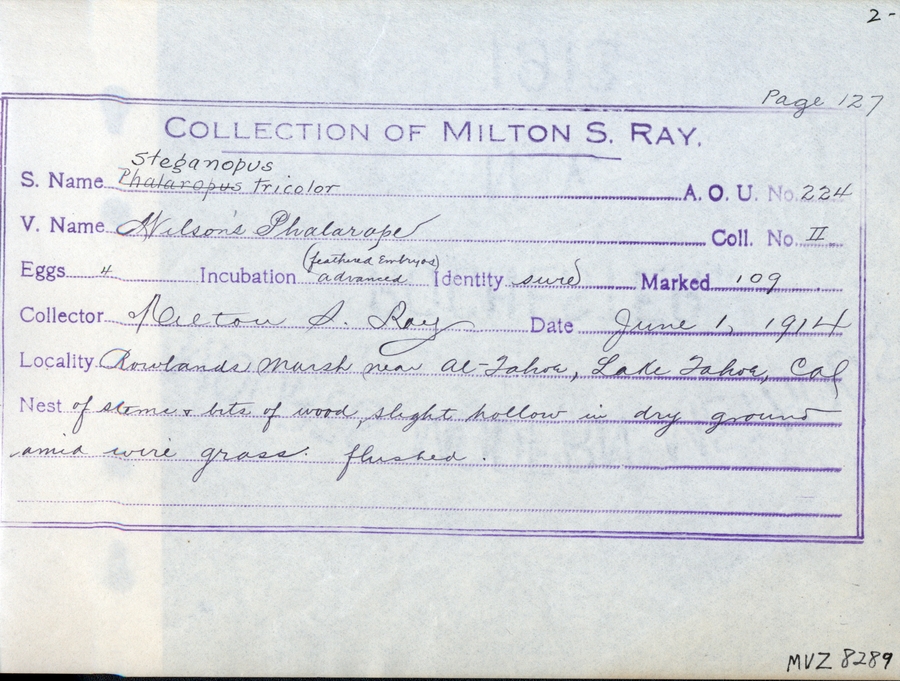 2-
Page 127
COLLECTION OF MILTON S. RAY.
Steganopus
S. Name Phalaropus tricolor A. O. U. No. 224
V. Name Wilson's Phalarope Coll. No. II
(feathered Embryos)
Eggs 4 Incubation advanced Identity sure Marked 109
Collector Milton S. Ray Date June 1, 1914
Locality Rowlands Marsh near Al-Tahoe, Lake Tahoe, Cal
Nest of stems & bits of wood, slight hollow in dry ground
amid wire grass. flushed.
MVZ 8289